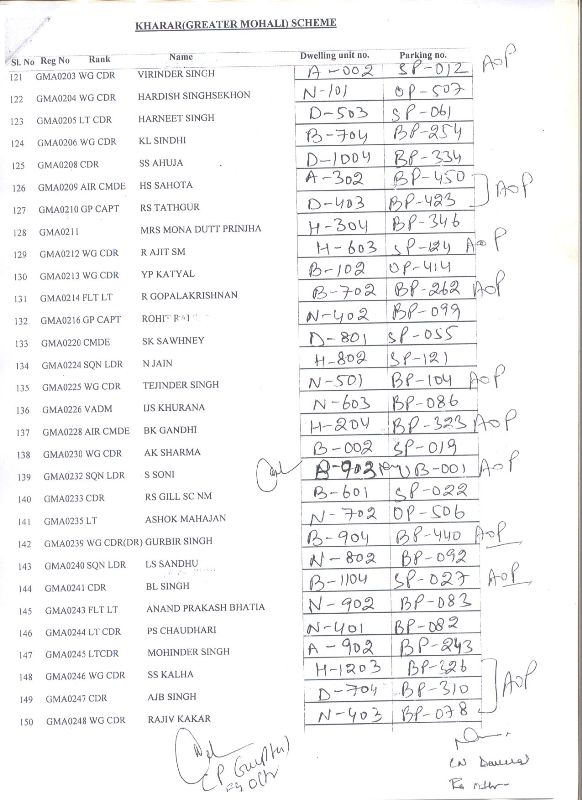 KHARAR(GREATER MOHALI) SCHEME
Sl. No Reg No Rank Name Dwelling unit no. Parking no.
121 GMA0203 WG CDR VIRINDER SINGH A-002 SP-012 AOP
122 GMA0204 WG CDR HARDISH SINGHSEKHON N-101 OP-507
123 GMA0205 LT CDR HARNEET SINGH D-503 SP-061
124 GMA0206 WG CDR KL SINDHI B-704 BP-254
125 GMA0208 CDR SS AHUJA D-1004 BP-334
126 GMA0209 AIR CMDE HS SAHOTA A-302 BP-450
127 GMA0210 GP CAPT RS TATHGUR D-403 BP-423 AOP
128 GMA0211 MRS MONA DUTT PRINJHA H-304 BP-346
129 GMA0212 WG CDR R AJIT SM H-603 SP-124 AOP
130 GMA0213 WG CDR YP KATYAL B-102 OP-414
131 GMA0214 FLT LT R GOPALAKRISHNAN B-702 BP-262 AOP
132 GMA0216 GP CAPT ROHIT N-402 BP-099
133 GMA0220 CMDE SK SAWHNEY D-801 SP-055
134 GMA0224 SQN LDR N JAIN H-802 SP-121
135 GMA0225 WG CDR TEJINDER SINGH N-501 BP-104 AOP
136 GMA0226 VADM IJS KHURANA N-603 BP-086
137 GMA0228 AIR CMDE BK GANDHI H-204 BP-323 AOP
138 GMA0230 WG CDR AK SHARMA B-002 SP-019
139 GMA0232 SQN LDR S SONI B-903 B-001 AOP
140 GMA0233 CDR RS GILL SC NM B-601 SP-022
141 GMA0235 LT ASHOK MAHAJAN N-702 OP-506
142 GMA0239 WG CDR(DR) GURBIR SINGH B-904 BP-440 AOP
143 GMA0240 SQN LDR LS SANDHU N-802 BP-092
144 GMA0241 CDR BL SINGH B-1104 SP-027 AOP
145 GMA0243 FLT LT ANAND PRAKASH BHATIA N-902 BP-083
146 GMA0244 LT CDR PS CHAUDHARI N-401 BP-082
147 GMA0245 LTCDR MOHINDER SINGH A-902 BP-243
148 GMA0246 WG CDR SS KALHA H-1203 BP-326
149 GMA0247 CDR AJB SINGH D-704 BP-310 AOP
150 GMA0248 WG CDR RAJIV KAKAR N-403 BP-078
(P Gupta)